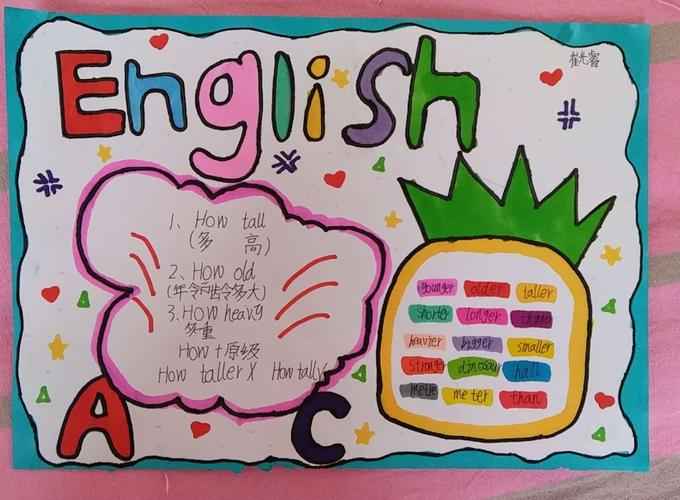 English
1、How tall
(多 高)
2、How old
(年龄多大)
3.How heavy
多重
How+原级
How taller X How tall√
A
C
younger older taller
shorter longer
heavier bigger smaller
stronger dinosaur hall
metre meter than